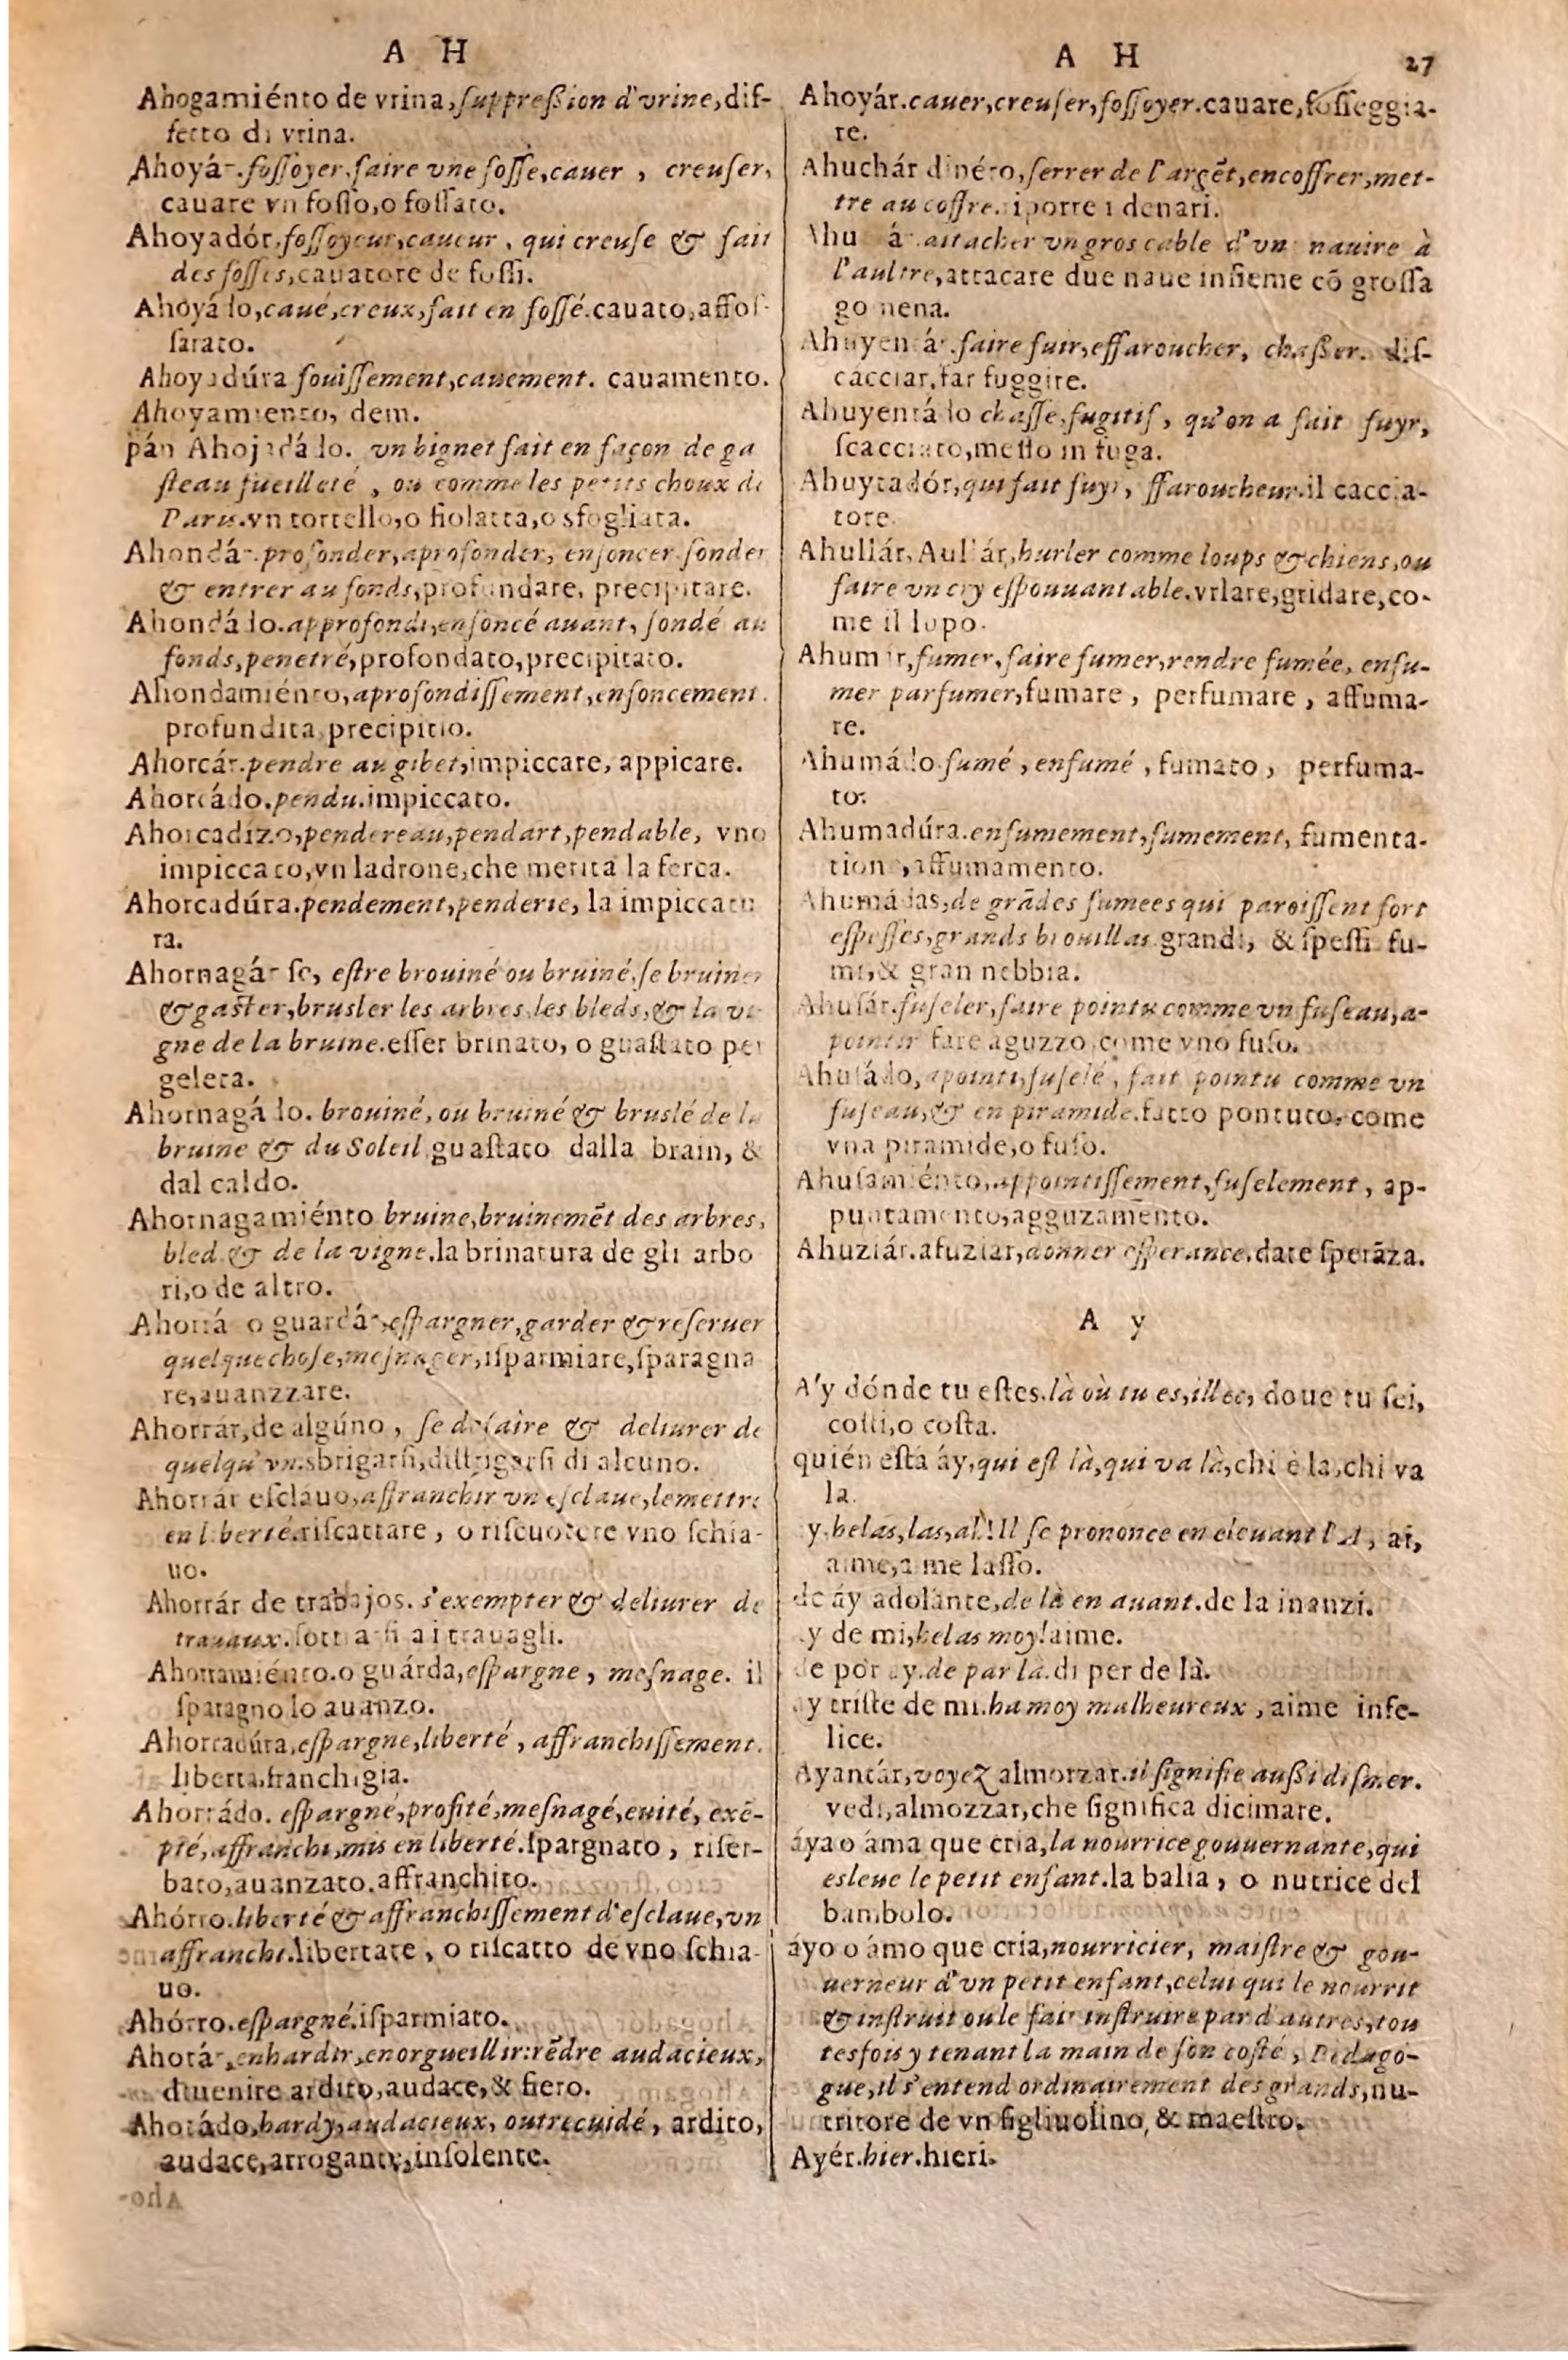 A H
Ahogamiénto de vrina, ſuppreßion d'vrine, dif-
fetto di vrina.
Ahoyár. foſſoyer, faire vne foſſe, cauer, creuſer,
cauare vn foſſo, o foſſato.
Ahoyadór, foſſoyeur, caueur, qui creuſe & fait
des foſſes, cauatore de foſſi.
Ahoyádo, caué, creux, fait en foſſé. cauato, affoſ-
ſatato.
Ahoyadúra fouiſſement, cauement. cauamento.
Ahoyamiento, dem.
pán Ahojadádo. vn bignet fait en façon de ga
ſteau fueilleté, ou comme les petits choux de
Paris. vn tortello, o fiolatta, o sfogliata.
Ahondár. profonder, aprofonder, enfoncer. fonder
& entrer au fonds, profundare, precipitare.
Ahondádo. approfondi, enfoncé auant, fondé au
fonds, penetré, profondato, precipitato.
Ahondamiénto, aprofondiſſement, enfoncement.
profundita, precipitio.
Ahorcár. pendre au gibet, impiccare, appicare.
Ahorcádo. pendu. impiccato.
Ahorcadizo, pendereau, pendart, pendable, vno
impiccato, vn ladrone, che merita la forca.
Ahorcadúra. pendement, penderie, la impiccatu
ra.
Ahornagár ſe, eſtre brouiné ou bruiné, ſe bruiner
& gaſter, bruſler les arbres, les bleds, & la vi-
gne de la bruine. eſſer brinato, o guaſtato per
geleta.
Ahornagádo. brouiné, ou bruiné & bruslé de la
bruine & du Soleil. guaſtato dalla brain, &
dal caldo.
Ahornagamiénto bruine, bruinemēt des arbres,
bled. & de la vigne. la brinatura de gli arbo
ri, o de altro.
Ahorrá o guardár, eſpargner, garder & reſeruer
quelque choſe, meſnager, iſparmiare, ſparagna
re, auanzzare.
Ahorrár, de algúno, ſe defaire & deliurer de
quelqu'vn. sbrigarſi, diſtrigarſi di alcuno.
Ahorrár eſclauo, affranchir vn eſclaue, le mettre
en liberté. riſcattare, o riſcuotere vno ſchia-
uo.
Ahorrár de trabajos. s'exempter & deliurer de
trauaux. ſottrarſi a i trauagli.
Ahorramiénto. o guárda, eſpargne, meſnage. il
ſparagno lo auanzo.
Ahorradúra, eſpargne, liberté, affranchiſſement.
liberta, franchigia.
Ahorrádo. eſpargné, profité, meſnagé, euité, exē-
pté, affranchi, mis en liberté. ſpargnato, riſer-
bato, auanzato. affranchito.
Ahórro. liberté & affranchiſſement d'eſclaue, vn
affranchi. libertate, o riſcatto de vno ſchia-
uo.
Ahórro. eſpargné. iſparmiato.
Ahotár, enhardir, enorgueillir: rēdre audacieux,
diuenire ardito, audace, & fiero.
Ahotádo, hardy, audacieux, outrecuidé, ardito,
audace, arrogante, inſolente.
A H 27
Ahoyár. cauer, creuſer, foſſoyer. cauare, foſſeggia-
re.
Ahuchár dinéro, ſerrer de l'argēt, encoffrer, met-
tre au coffre. iporre i denari.
Ahu ár. attacher vn gros cable d'vn nauire à
l'aultre, attacare due naue inſieme cō groſſa
gomena.
Ahuyentár. faire fuir, effaroucher, chaßer. diſ-
cacciar, far fuggire.
Ahuyentádo chaſſe, fugitif, qu'on a fait fuyr,
ſcacciato, meſſo in fuga.
Ahuytadór, qui fait fuyr, ffaroucheur. il caccia-
tore.
Ahullár, Aullár, hurler comme loups & chiens, ou
faire vn cry eſpouuantable. vrlare, gridare, co-
me il lupo.
Ahumar, fumer, faire fumer, rendre fumée, enfu-
mer parfumer, fumare, perfumare, affuma-
re.
Ahumádo fumé, enfumé, fumato, perfuma-
to.
Ahumadúra. enfumement, fumement, fumenta-
tione, affumamento.
Ahumádas, de grādes fumees qui paroiſſent fort
eſpeſſes, grands brouillas. grandi, & ſpeſſi fu-
mi, & gran nebbia.
Ahuſár. fuſeler, faire pointu comme vn fuſeau, a-
pointir fare aguzzo, come vno fuſo.
Ahuſádo, apointi, fuſelé, fait pointu comme vn
fuſeau, & en piramide. fatto pontuto, come
vna piramide, o fuſo.
Ahuſamiénto, appointiſſement, fuſelement, ap-
puntamento, agguzamento.
Ahuziár. afuziar, donner eſperance. dare ſperāza.
A y
A'y dónde tu eſtes. là où tu es, illec, doue tu ſei,
coſti, o coſta.
quién eſtá áy, qui eſt là, qui va là, chi è la, chi va
la.
y, helas, las, ah! Il ſe prononce en eleuant l'A, ai,
aime, a me laſſo.
de áy adolánte, de là en auant. de la inanzi.
y de mi, helas moy! aime.
de pór ay. de par là. di per de là.
ay triſte de mi. ha moy malheureux, aime infe-
lice.
Ayantár, voyez almorzar. il ſignifie außi diſner.
vedi, almozzar, che ſignifica dicimare.
áya o áma que cria, la nourrice gouuernante, qui
esleue le petit enfant. la balia, o nutrice del
bambolo.
áyo o ámo que cria, nourricier, maiſtre & gou-
uerneur d'vn petit enfant, celui qui le nourrit
& inſtruit ou le fait inſtruire par d'autres, tou
tesfois y tenant la main de ſon coſté, Pedago-
gue, il s'entend ordinairement des grands, nu-
tritore de vn figliuolino, & maeſtro.
Ayér. hier. hieri.